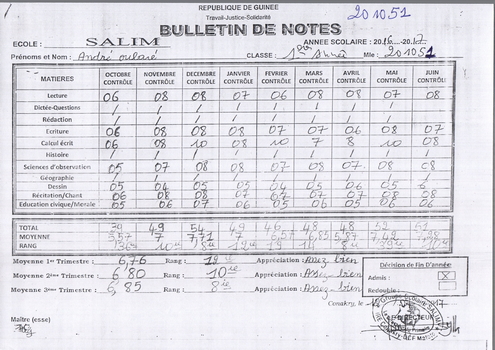 REPUBLIQUE DE GUINEE
Travail-Justice-Solidarité
201051
BULLETIN DE NOTES
ECOLE : SALIM ANNEE SCOLAIRE : 2016....2017
Prénoms et Nom : André CLASSE : 1ère Année Mle : 201051
MATIERES OCTOBRE CONTRÔLE NOVEMBRE CONTRÔLE DECEMBRE CONTRÔLE JANVIER CONTRÔLE FEVRIER CONTRÔLE MARS CONTRÔLE AVRIL CONTRÔLE MAI CONTRÔLE JUIN CONTRÔLE
Lecture 06 08 08 07 06 08 08 07 08
Dictée-Questions / / / / / / / / /
Rédaction / / / / / / / / /
Ecriture 06 08 08 08 07 08 07
Calcul écrit 08 08 10 08 10 7 8 10 08
Histoire / / / / / / / / /
Sciences d'observation 05 07 08 08 07 08 07 08 08
Géographie / / / / / / / / /
Dessin 05 04 05 04 05 04 06 05 6
Récitation/Chant 06 08 08 07 07
Education civique/Morale 05 06 07 06 05 06 05 06 06
TOTAL 49 54 49 46 48 48 52 51
MOYENNE 7 7,71 7 6,57 6,85 7,28
RANG
Moyenne 1er Trimestre : 6,76 Rang : Appréciation : Assez bien
Moyenne 2ème Trimestre : 6,80 Rang : 10è Appréciation : Assez bien
Moyenne 3ème Trimestre : 6,85 Rang : 8è Appréciation : Assez bien
Décision de Fin D'année
Admis : X
Redouble :
Conakry, le 17
Maître (esse)
LE DIRECTEUR